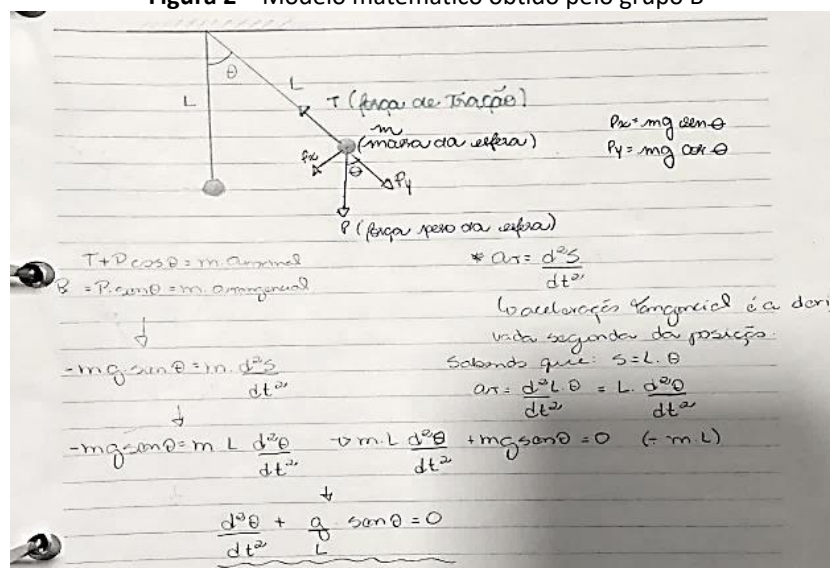 Figura 2 – Modelo matemático obtido pelo grupo B
θ
L
L
T (força de Tração)
m
(massa da esfera)
Px = mg sen θ
Py = mg cos θ
Px
θ
Py
P (força peso da esfera)
T+Pcosθ = m.
= P.senθ = m.
* aT = d²S/dt²
aceleração tangencial é a deri
vada segunda da posição.
-mg.senθ = m. d²S/dt²
Sabendo que: S = L.θ
aT = d²L.θ/dt² = L. d²θ/dt²
-mgsenθ = m L d²θ/dt² → m.L d²θ/dt² + mgsenθ = 0 (÷ m.L)
d²θ/dt² + g/L senθ = 0